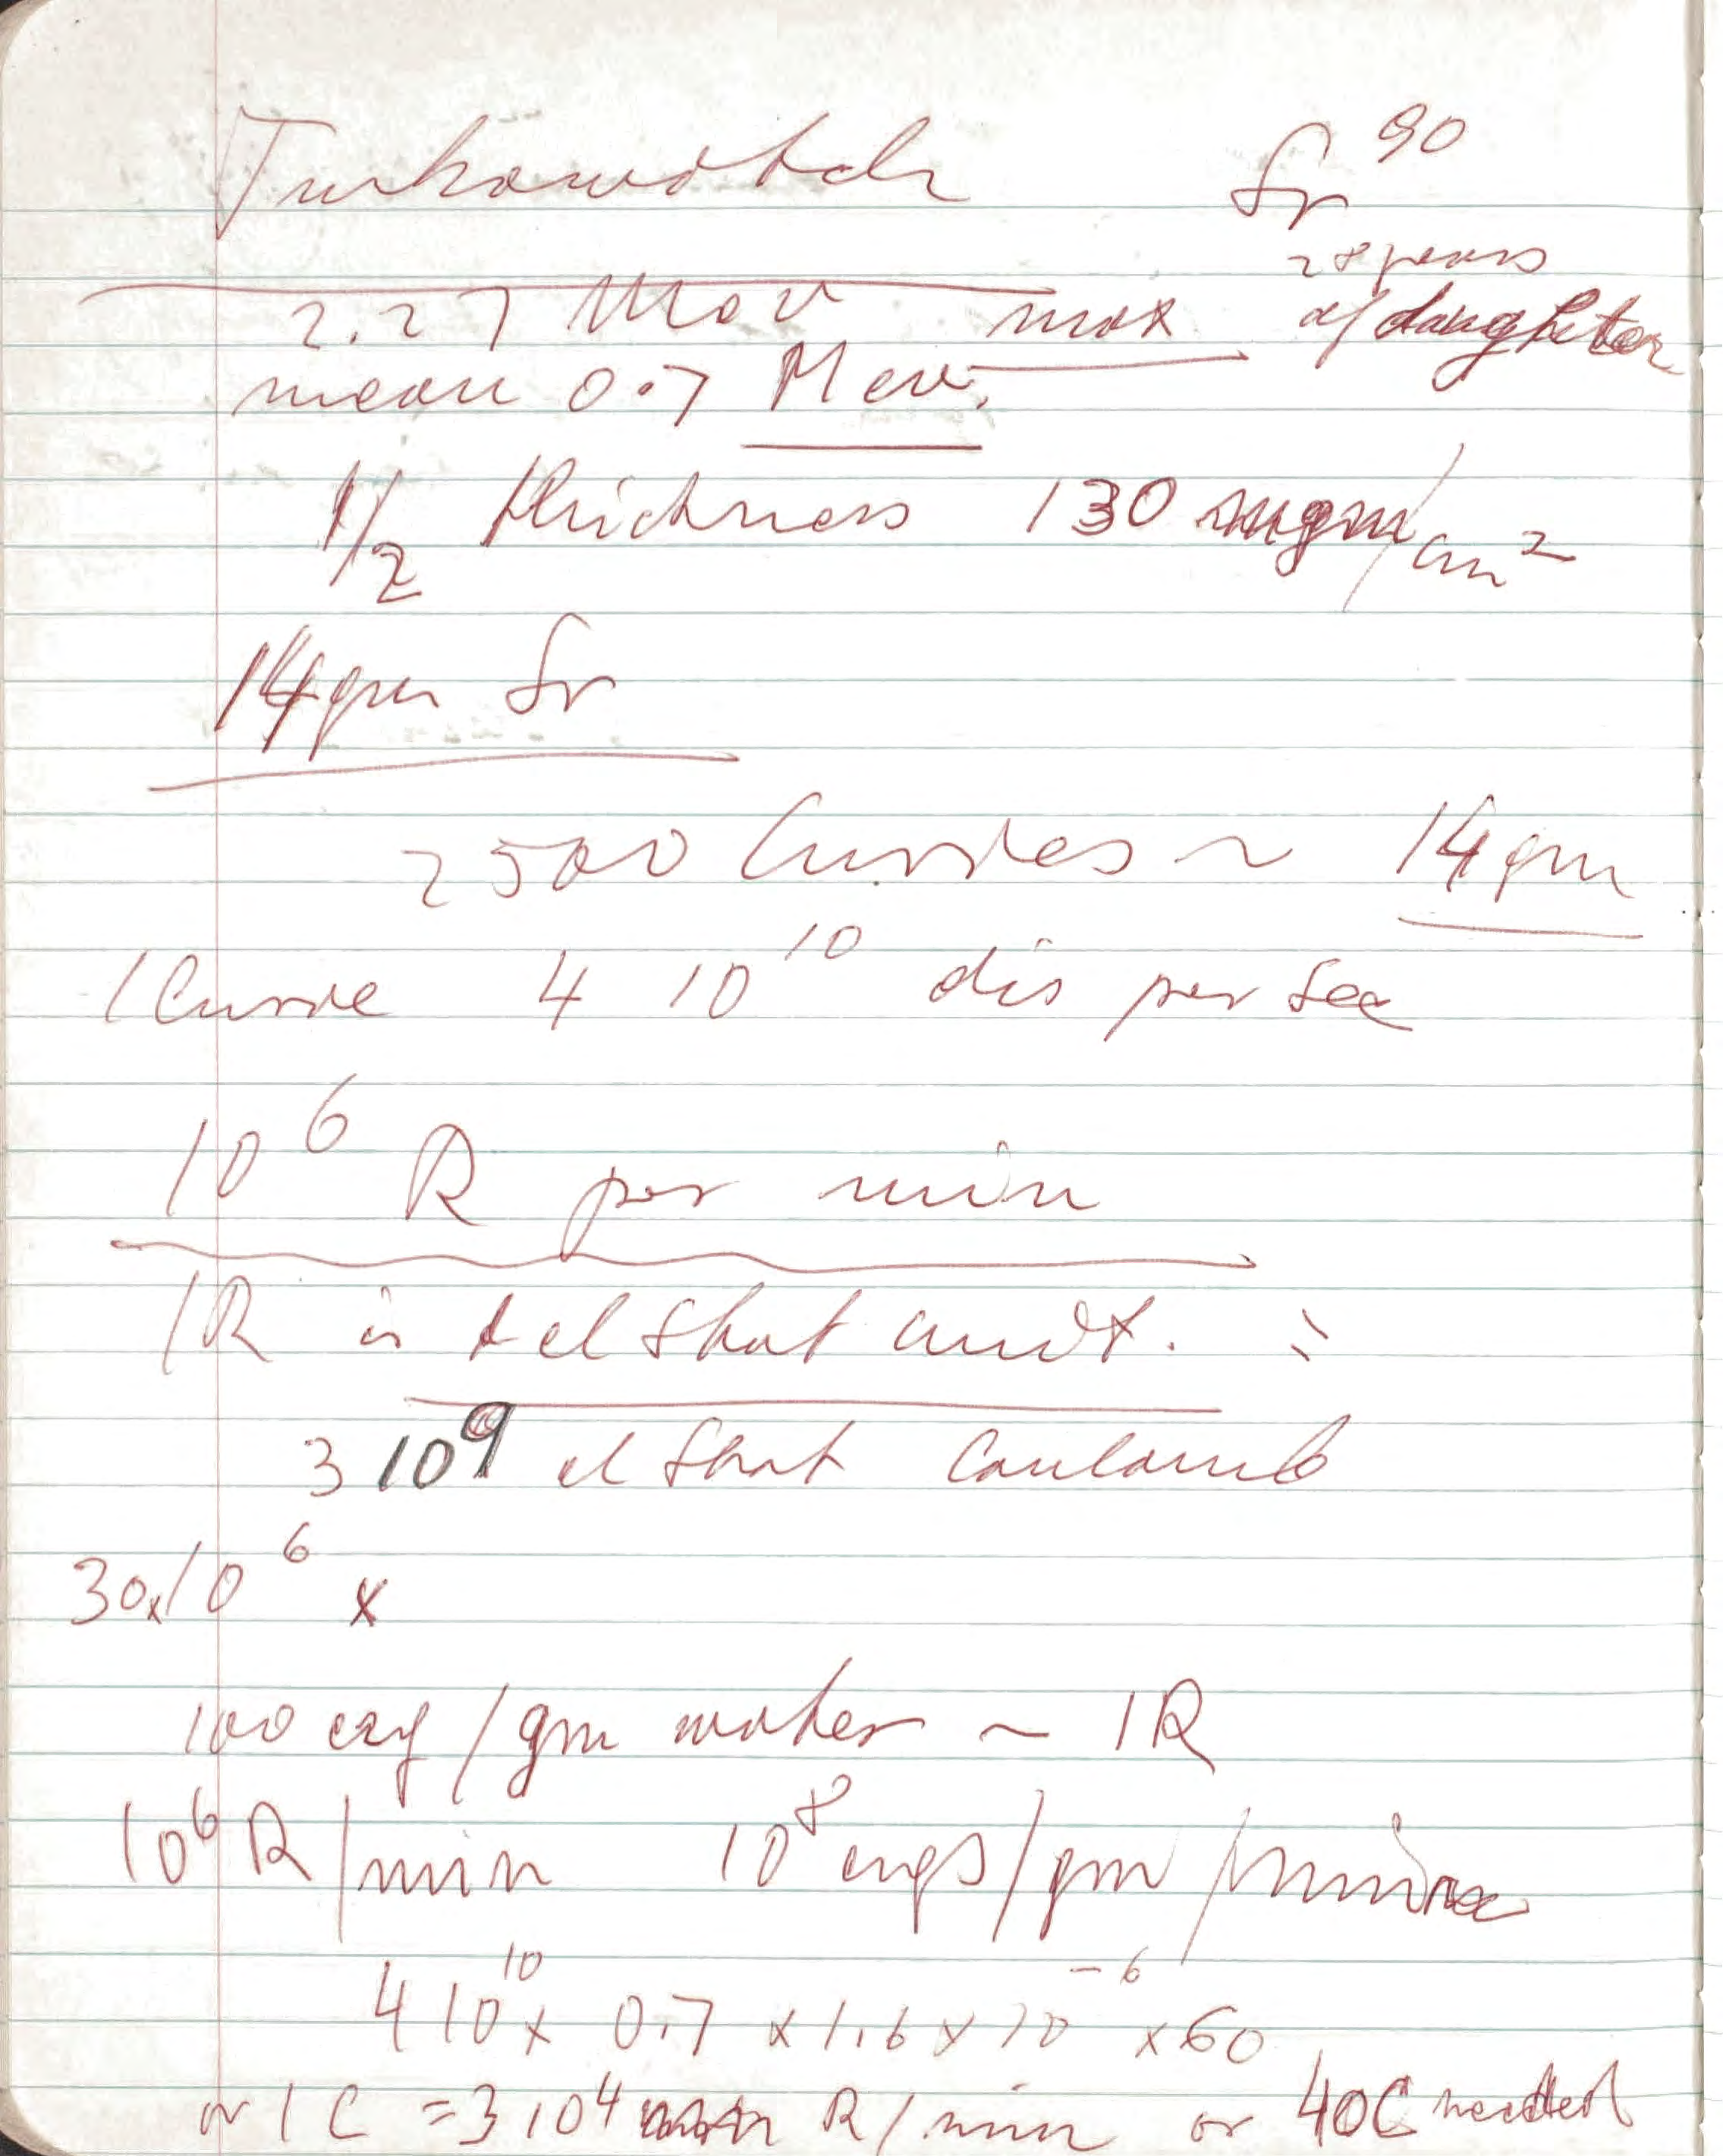 Turkowotch Sr^90
28 years
2.27 Mev max of daughter
mean 0.7 Mev.
1/2 thickness 130 mgm/cm^2
14gm Sr
2500 Curies ~ 14gm
1 Curie 4 10^10 dis per sec
10^6 R per min
1R is 1 el stat unit. =
3 10^9 el stat Coulomb
30x10^6 x
100 erg/gm water ~ 1R
10^6 R/min 10^8 ergs/gm/minute
4 10^10 x 0.7 x 1.6 x 10^-6 x 60
or 1 C = 3 10^4 R/min or 40C needed